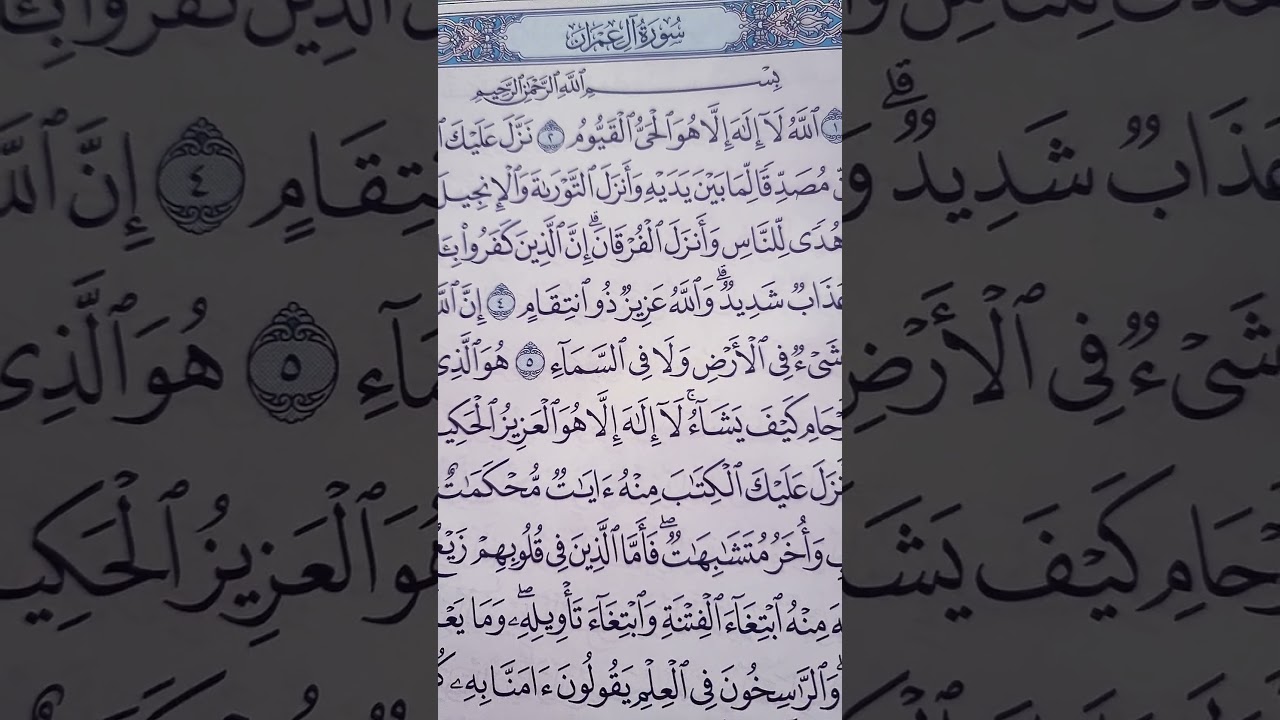 سُورَةُ آلِ عِمْرَانَ
بِسْمِ ٱللَّهِ ٱلرَّحْمَٰنِ ٱلرَّحِيمِ
١ ٱللَّهُ لَآ إِلَٰهَ إِلَّا هُوَ ٱلْحَىُّ ٱلْقَيُّومُ ٢ نَزَّلَ عَلَيْكَ
مُصَدِّقًا لِّمَا بَيْنَ يَدَيْهِ وَأَنزَلَ ٱلتَّوْرَىٰةَ وَٱلْإِنجِيلَ
هُدًى لِّلنَّاسِ وَأَنزَلَ ٱلْفُرْقَانَ ۗ إِنَّ ٱلَّذِينَ كَفَرُوا۟ بِـَٔا
عَذَابٌ شَدِيدٌ ۗ وَٱللَّهُ عَزِيزٌ ذُو ٱنتِقَامٍ ٤ إِنَّ ٱللَّ
شَىْءٌ فِى ٱلْأَرْضِ وَلَا فِى ٱلسَّمَآءِ ٥ هُوَ ٱلَّذِى
رْحَامِ كَيْفَ يَشَآءُ ۚ لَآ إِلَٰهَ إِلَّا هُوَ ٱلْعَزِيزُ ٱلْحَكِي
نزَلَ عَلَيْكَ ٱلْكِتَٰبَ مِنْهُ ءَايَٰتٌ مُّحْكَمَٰتٌ
بِ وَأُخَرُ مُتَشَٰبِهَٰتٌ ۖ فَأَمَّا ٱلَّذِينَ فِى قُلُوبِهِمْ زَيْغٌ
هَ مِنْهُ ٱبْتِغَآءَ ٱلْفِتْنَةِ وَٱبْتِغَآءَ تَأْوِيلِهِۦ ۖ وَمَا يَعْ
وَٱلرَّٰسِخُونَ فِى ٱلْعِلْمِ يَقُولُونَ ءَامَنَّا بِهِۦ كُ